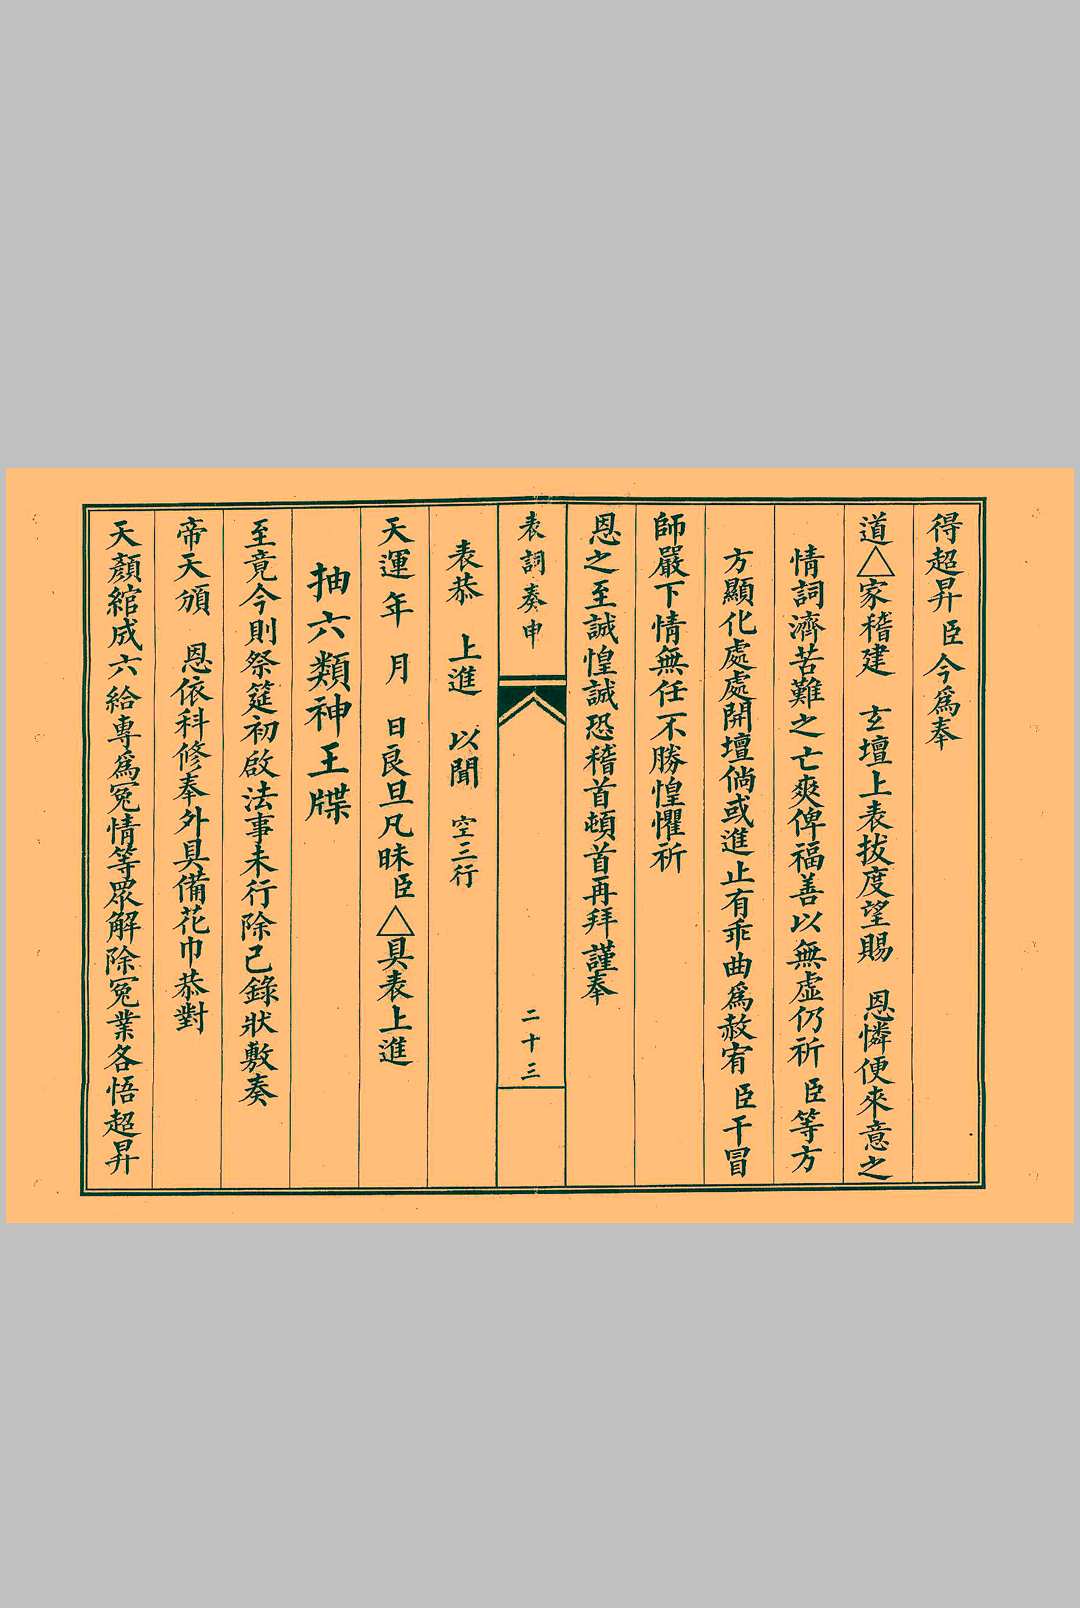 得超昇臣今爲奉
道△家稽建　玄壇上表拔度望賜　恩憐便來意之
情詞濟苦難之亡爽俾福善以無虛仍祈臣等方
方顯化處處開壇倘或進止有乖曲爲赦宥臣干冒
師嚴下情無任不勝惶懼祈
恩之至誠惶誠恐稽首頓首再拜謹奉
表詞奏申
二十三
表恭　上進　以聞　空三行
天運年　月　日良旦凡昧臣△具表上進
抽六類神王牒
至竟今則祭筵初啟法事未行除已錄狀敷奏
帝天頒　恩依科修奉外具備花巾恭對
天顏綰成六給專爲冤情等眾解除冤業各悟超昇